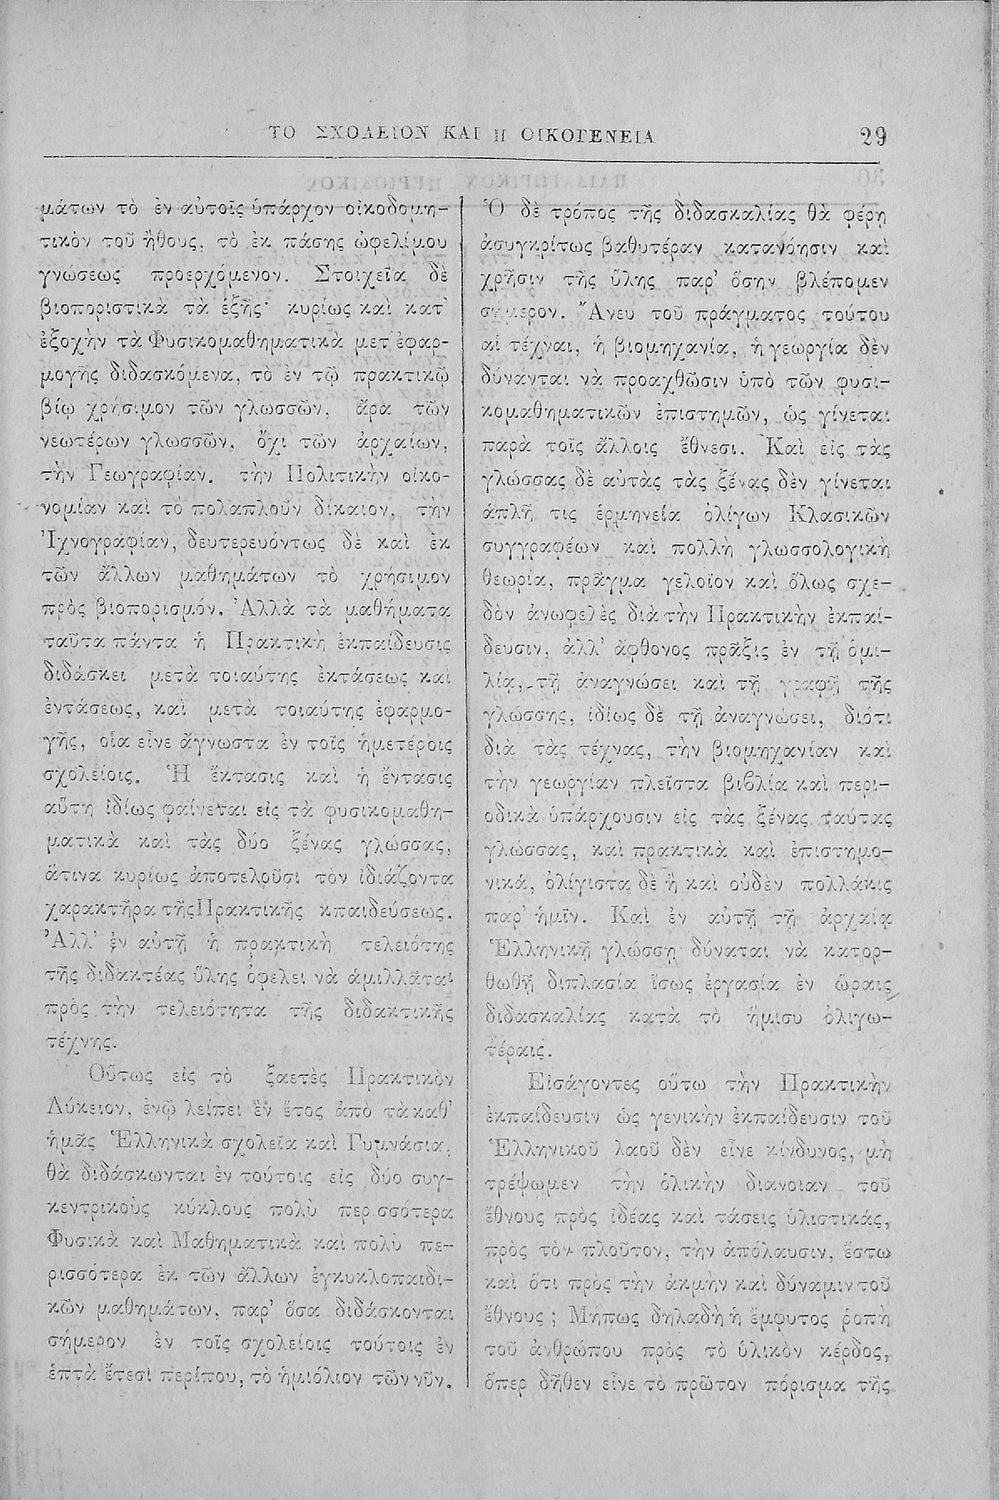 ΤΟ ΣΧΟΛΕΙΟΝ ΚΑΙ Η ΟΙΚΟΓΕΝΕΙΑ 29
μάτων τὸ ἐν αὐτοῖς ὑπάρχον οἰκοδομη-
τικὸν τοῦ ἤθους, τὸ ἐκ πάσης ὠφελίμου
γνώσεως προερχόμενον. Στοιχεῖα δὲ
βιοποριστικὰ τὰ ἑξῆς· κυρίως καὶ κατ'
ἐξοχὴν τὰ Φυσικομαθηματικὰ μετ' ἐφαρ-
μογῆς διδασκόμενα, τὸ ἐν τῷ πρακτικῷ
βίῳ χρήσιμον τῶν γλωσσῶν, ἄρα τῶν
νεωτέρων γλωσσῶν, ὄχι τῶν ἀρχαίων,
τὴν Γεωγραφίαν, τὴν Πολιτικὴν οἰκο-
νομίαν καὶ τὸ πολαπλοῦν δίκαιον, τὴν
Ἰχνογραφίαν, δευτερευόντως δὲ καὶ ἐκ
τῶν ἄλλων μαθημάτων τὸ χρήσιμον
πρὸς βιοπορισμόν. Ἀλλὰ τὰ μαθήματα
ταῦτα πάντα ἡ Πρακτικὴ ἐκπαίδευσις
διδάσκει μετὰ τοιαύτης ἐκτάσεως καὶ
ἐντάσεως, καὶ μετὰ τοιαύτης ἐφαρμο-
γῆς, οἷα εἶνε ἄγνωστα ἐν τοῖς ἡμετέροις
σχολείοις. Ἡ ἔκτασις καὶ ἡ ἔντασις
αὕτη ἰδίως φαίνεται εἰς τὰ φυσικομαθη-
ματικὰ καὶ τὰς δύο ξένας γλώσσας,
ἅτινα κυρίως ἀποτελοῦσι τὸν ἰδιάζοντα
χαρακτῆρα τῆς Πρακτικῆς κπαιδεύσεως.
Ἀλλ' ἐν αὐτῇ ἡ πρακτικὴ τελειότης
τῆς διδακτέας ὕλης ὀφελει νὰ ἁμιλλᾶται
πρὸς τὴν τελειότητα τῆς διδακτικῆς
τέχνης.
Οὕτως εἰς τὸ ξαετὲς Πρακτικὸν
Λύκειον, ἐνῷ λείπει ἓν ἔτος ἀπὸ τὰ καθ'
ἡμᾶς Ἑλληνικὰ σχολεῖα καὶ Γυμνάσια,
θὰ διδάσκωνται ἐν τούτοις εἰς δύο συγ-
κεντρικοὺς κύκλους πολὺ περσσότερα
Φυσικὰ καὶ Μαθηματικὰ καὶ πολὺ πε-
ρισσότερα ἐκ τῶν ἄλλων ἐγκυκλοπαιδι-
κῶν μαθημάτων, παρ' ὅσα διδάσκονται
σήμερον ἐν τοῖς σχολείοις τούτοις ἐν
ἑπτὰ ἔτεσι περίπου, τὸ ἡμιόλιον τῶν νῦν.
Ὁ δὲ τρόπος τῆς διδασκαλίας θὰ φέρῃ
ἀσυγκρίτως βαθυτέραν κατανόησιν καὶ
χρῆσιν τῆς ὕλης παρ' ὅσην βλέπομεν
σήμερον. Ἄνευ τοῦ πράγματος τούτου
αἱ τέχναι, ἡ βιομηχανία, ἡ γεωργία δὲν
δύνανται νὰ προαχθῶσιν ὑπὸ τῶν φυσι-
κομαθηματικῶν ἐπιστημῶν, ὡς γίνεται
παρὰ τοῖς ἄλλοις ἔθνεσι. Καὶ εἰς τὰς
γλώσσας δὲ αὐτὰς τὰς ξένας δὲν γίνεται
ἁπλῆ τις ἑρμηνεία ὀλίγων Κλασικῶν
συγγραφέων καὶ πολλὴ γλωσσολογικὴ
θεωρία, πρᾶγμα γελοῖον καὶ ὅλως σχε-
δὸν ἀνωφελὲς διὰ τὴν Πρακτικὴν ἐκπαί-
δευσιν, ἀλλ' ἄφθονος πρᾶξις ἐν τῇ ὁμι-
λίᾳ, τῇ ἀναγνώσει καὶ τῇ γραφῇ τῆς
γλώσσης, ἰδίως δὲ τῇ ἀναγνώσει, διότι
διὰ τὰς τέχνας, τὴν βιομηχανίαν καὶ
τὴν γεωργίαν πλεῖστα βιβλία καὶ περι-
οδικὰ ὑπάρχουσιν εἰς τὰς ξένας ταύτας
γλώσσας, καὶ πρακτικὰ καὶ ἐπιστημο-
νικά, ὀλίγιστα δὲ ἢ καὶ οὐδὲν πολλάκις
παρ' ἡμῖν. Καὶ ἐν αὐτῇ τῇ ἀρχαίᾳ
Ἑλληνικῇ γλώσσῃ δύναται νὰ κατορ-
θωθῇ διπλασία ἴσως ἐργασία ἐν ὥραις
διδασκαλίας κατὰ τὸ ἥμισυ ὀλιγω-
τέραις.
Εἰσάγοντες οὕτω τὴν Πρακτικὴν
ἐκπαίδευσιν ὡς γενικὴν ἐκπαίδευσιν τοῦ
Ἑλληνικοῦ λαοῦ δὲν εἶνε κίνδυνος, μὴ
τρέψωμεν τὴν ὁλικὴν διανοιαν τοῦ
ἔθνους πρὸς ἰδέας καὶ τάσεις ὑλιστικάς,
πρὸς τὸν πλοῦτον, τὴν ἀπόλαυσιν, ἔστω
καὶ ὅτι πρὸς τὴν ἀκμὴν καὶ δύναμιν τοῦ
ἔθνους ; Μήπως δηλαδὴ ἡ ἔμφυτος ῥοπὴ
τοῦ ἀνθρώπου πρὸς τὸ ὑλικὸν κέρδος,
ὅπερ δῆθεν εἶνε τὸ πρῶτον πόρισμα τῆς